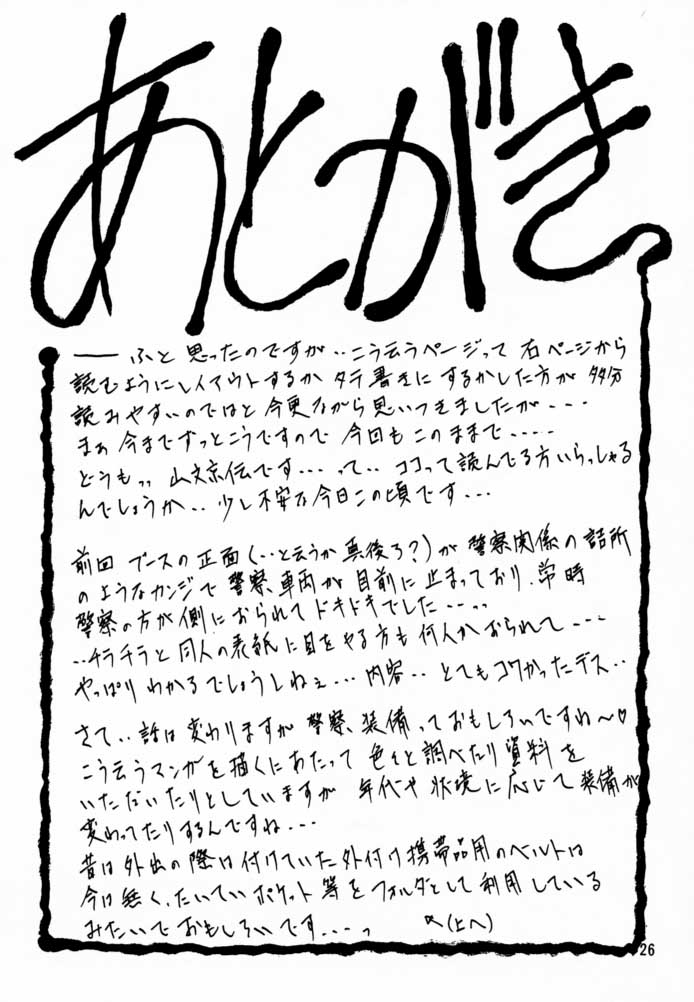 あとがき
── ふと思ったのですが‥こう云うページって右ページから
読むようにレイアウトするかタテ書きにするかした方が多分
読みやすいのではと今更ながら思いつきましたが---
まぁ今までずっとこうですので今回もこのままで----
どうもっ、山文京伝です---って‥ココって読んでる方いらっしゃる
んでしょうか‥少し不安な今日この頃です---
前回ブースの正面(‥と云うか真後ろ?)が警察関係の詰所
のようなカンジで警察車両が目前に止まっており、常時
警察の方が側におられてドキドキでした---っ
‥チラチラと同人の表紙に目をやる方も何人かおられて---
やっぱりわかるでしょうしねぇ---内容‥とてもコワかったデス‥
さて‥話は変わりますが警察装備っておもしろいですね〜♡
こう云うマンガを描くにあたって色々と調べたり資料を
いただいたりとしていますが年代や状境に応じて装備が
変わってたりするんですね---
昔は外出の際は付けていた外付け携帯品用のベルトは
今は無く、たいていポケット等をフォルダとして利用している
みたいでおもしろいです---っ (上へ)
26